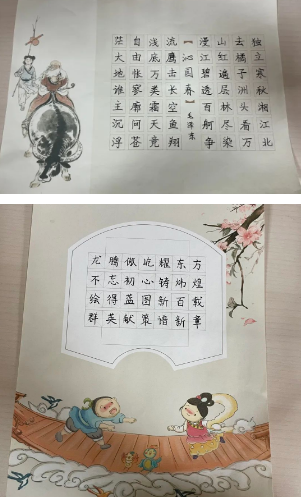 独立寒秋湘江北
去橘子洲头看万
山红遍层林尽染
漫江碧透百舸争
【沁园春】毛泽东
流鹰击长空鱼翔
浅底万类霜天竞
自由怅寥廓问苍
茫大地谁主沉浮
龙腾傲屹耀东方
不忘初心铸炜煌
绘得蓝图新百载
群英献策谱新章